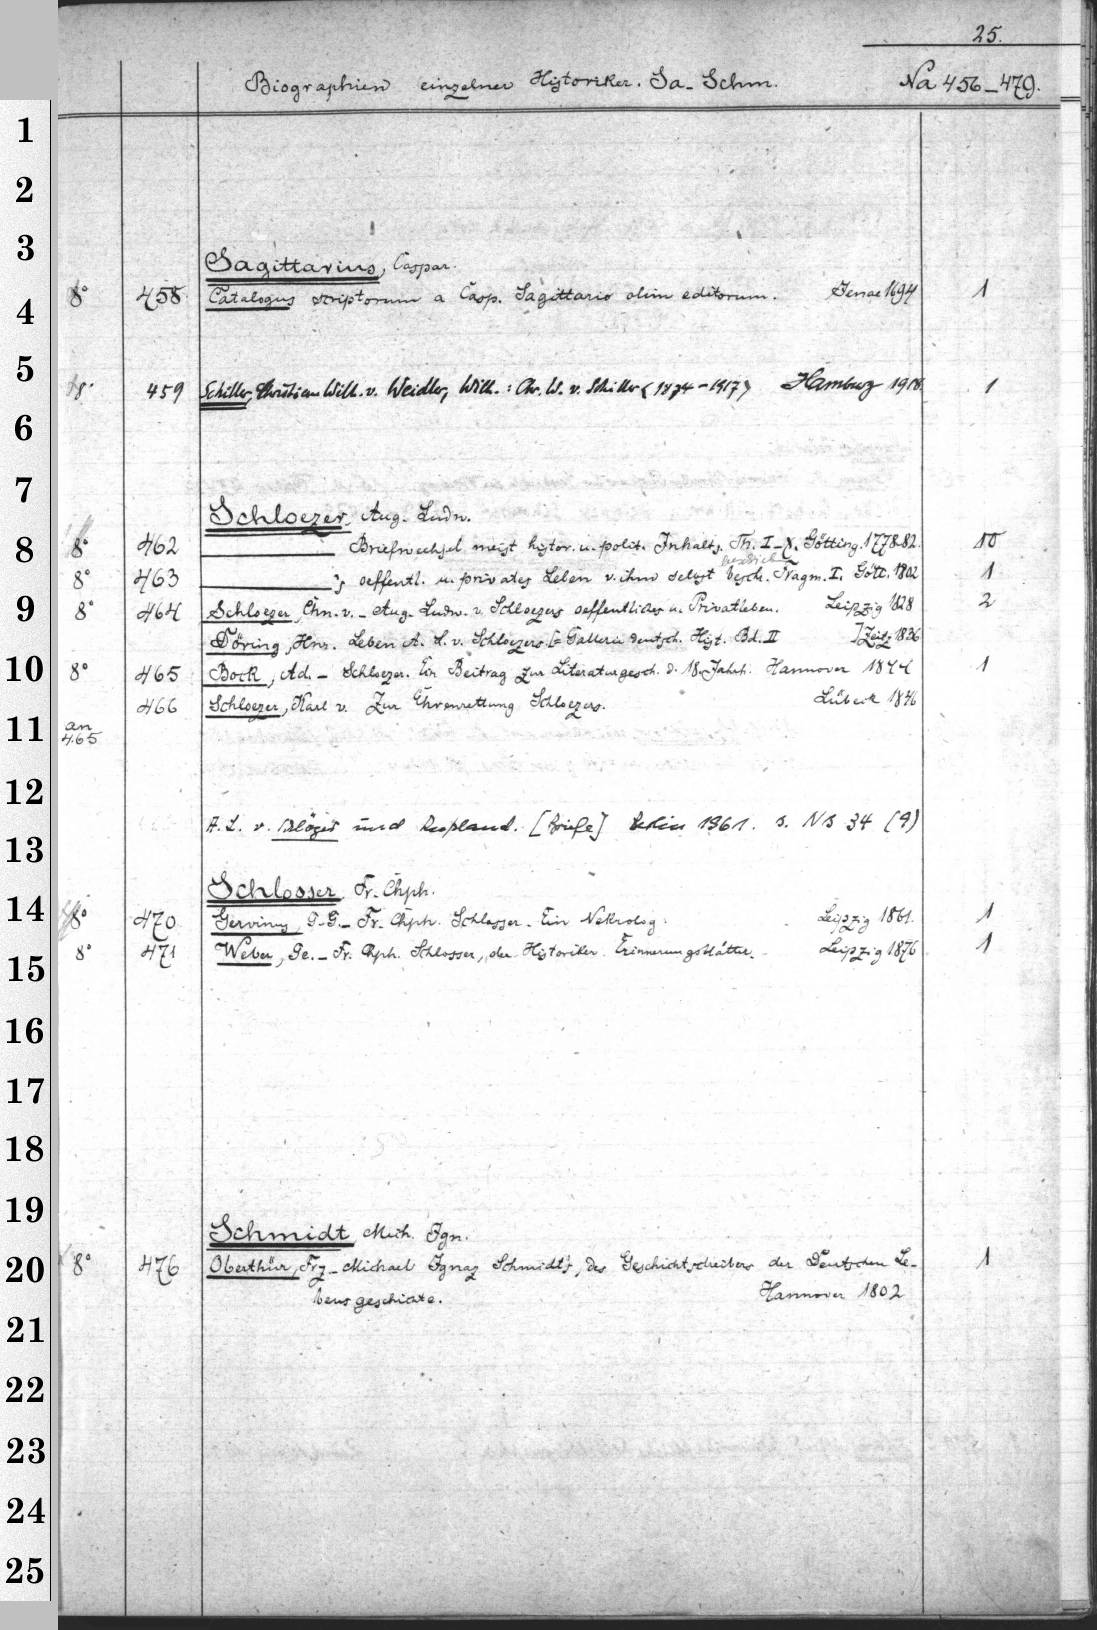 25.
Biographien einzelner Historiker. Sa-Schm. Na 456-479.
1
2
3
Sagittarius, Caspar.
8° 458 Catalogus scriptorum a Casp. Sagittario olim editorum. Jenae 1694 1
4
5
8° 459 Schiller, Christian Wilh. v. Weidler, Wilh.: Chr. W. v. Schiller (1874-1917) Hamburg 1918 1
6
7
Schloezer, Aug. Ludw.
8 8° 462 Briefwechsel meist histor. u. polit. Inhalts. Th. I-X. Götting. 1778-82. 10
8° 463 's oeffentl. u. privates Leben v. ihm selbst besch. Fragm. I. Gött. 1802 1
9 8° 464 Schloezer, Chn. v. - Aug. Ludw. v. Schloezers oeffentliches u. Privatleben. Leipzig 1828 2
Döring, Hnr. Leben A. L. v. Schloezers [= Gallerie deutsch. Hist. Bd. II ] Zeitz 1836
10 8° 465 Bock, Ad. - Schloezer. Ein Beitrag zur Literaturgesch. d. 18. Jahrh. Hannover 1844 1
466 Schloezer, Karl v. Zur Ehrenrettung Schloezers. Lübeck 1846
11 an 465
12
A. L. v. Schlözer und Russland. [Briefe] Berlin 1961. s. NB 34 (9)
13
Schlosser, Fr. Chph.
14 8° 470 Gervinus, G. G. - Fr. Chph. Schlosser. Ein Nekrolog. Leipzig 1861. 1
8° 471 Weber, Ge. - Fr. Chph. Schlosser, der Historiker. Erinnerungsblätter. Leipzig 1876 1
15
16
17
18
19
Schmidt, Mich. Ign.
20 8° 476 Oberthür, Frz. - Michael Ignaz Schmidt's, des Geschichtschreibers der Deutschen Le- 1
bensgeschichte. Hannover 1802
21
22
23
24
25